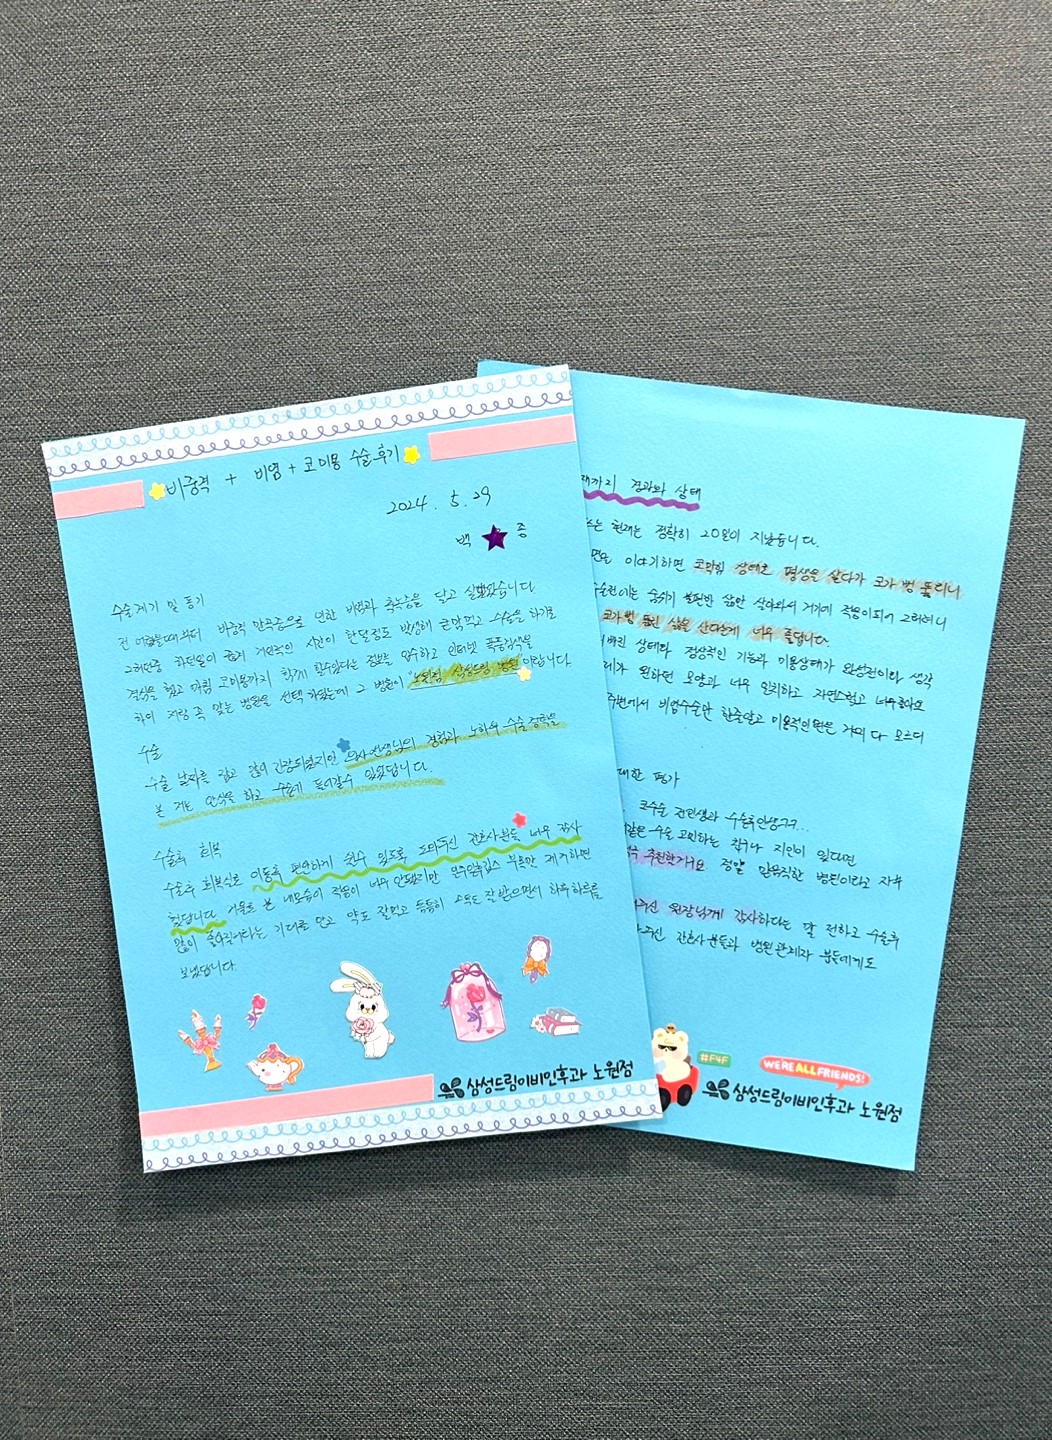 비중격 + 비염 + 코미용 수술후기
2024. 5. 29
백 종
수술계기 및 동기
전 어렸을때부터 비중격 만곡증으로 인한 비염과 축농증을 달고 살았습니다
그러던중 하던일이 좋게 개인적인 시간이 한달정도 발생해 큰맘먹고 수술을 하기로
결심을 했고 마침 코미용까지 함께 할수있다는 정보를 입수하고 인터넷 폭풍검색을
하여 저랑 꼭 맞는 병원을 선택 하였는데 그 병원이 "노원점 삼성드림 병원"이랍니다.
수술
수술 날짜를 잡고 많이 긴장되었지만 의사선생님의 경험과 노하우 수술 경력을
본 저는 안심을 하고 수술에 들어갈수 있었답니다.
수술후 회복
수술후 회복실로 이동후 편안하게 쉴수 있도록 도와주신 간호사분들 너무 감사
했답니다. 거울로 본 내모습이 적응이 너무 안됐지만 부목만 제거하면
많이 좋아질거라는 기대를 안고 약도 잘먹고 틈틈이 소독도 잘 받으면서 하루하루를
보냈답니다.
삼성드림이비인후과 노원점
까지 경과와 상태
는 현재는 정확히 20일이 지났습니다.
면을 이야기하면 코막힘 상태로 평생을 살다가 코가 뻥 뚫리니
수술전에는 숨쉬기 불편한 삶만 살아와서 거기에 적응이되어 그러려니
코가 뻥 뚫린 삶을 산다는게 너무 좋답니다.
빠진 상태라 정상적인 기능과 미용상태가 완성전이라 생각
제가 원하던 모양과 너무 일치하고 자연스럽고 너무좋아요
주변에서 비염수술만 한줄알고 미용적인면은 거의 다 모르더
대한 평가
코수술 전인생과 수술후인생구...
같은 수술 고민하는 친구나 지인이 있다면
추천한거요 정말 믿음직한 병원이라고 자부
주신 원장님께 감사하다는 말 전하고 수술후
주신 간호사분들과 병원관계자 분들에게도
#F4F
WE'RE ALL FRIENDS!
삼성드림이비인후과 노원점